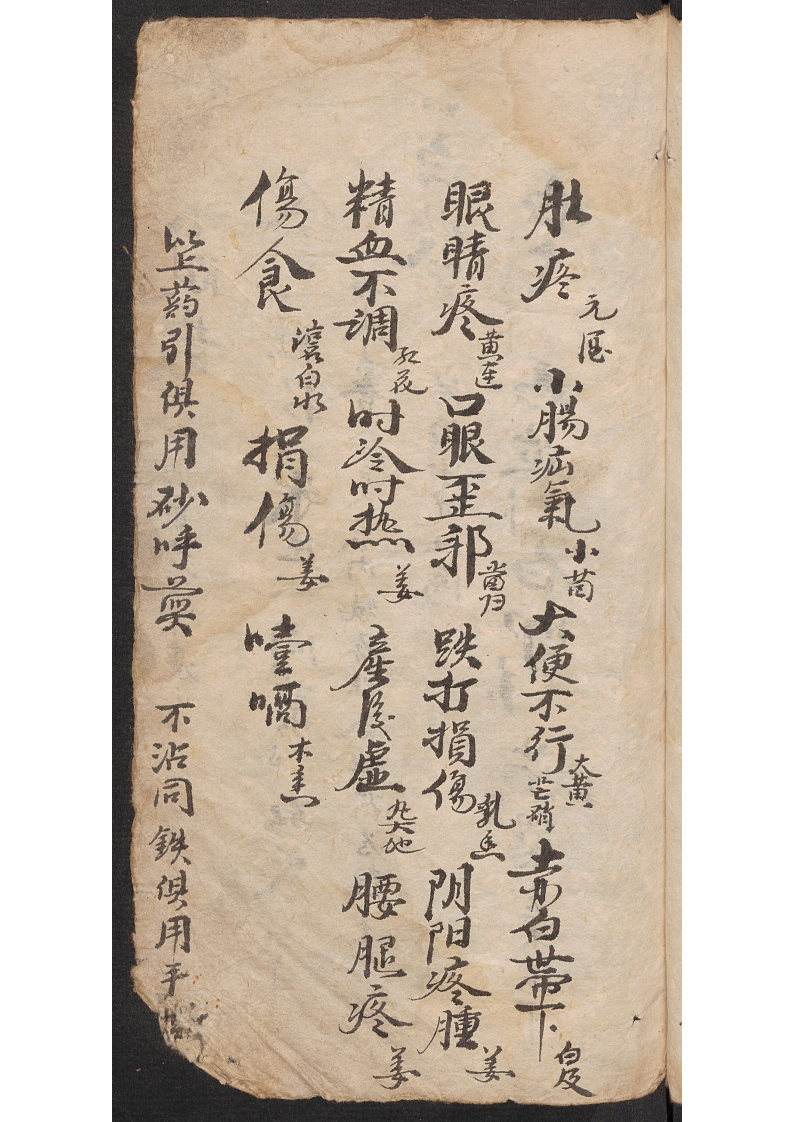 肚疼 元 小腸疝氣 小茴 大便不行 大黃 芒硝 赤白帶下 白及
眼睛疼 黃連 口眼歪邪 當归 跌打損傷 乳香 阴阳疼腫 姜
精血不調 红花 时冷时热 姜 產後虛 大地 腰腿疼 姜
傷食 滾白水 捐傷 姜 噎嗝 木香
以上药引俱用砂呼 不沾同鉄俱用手